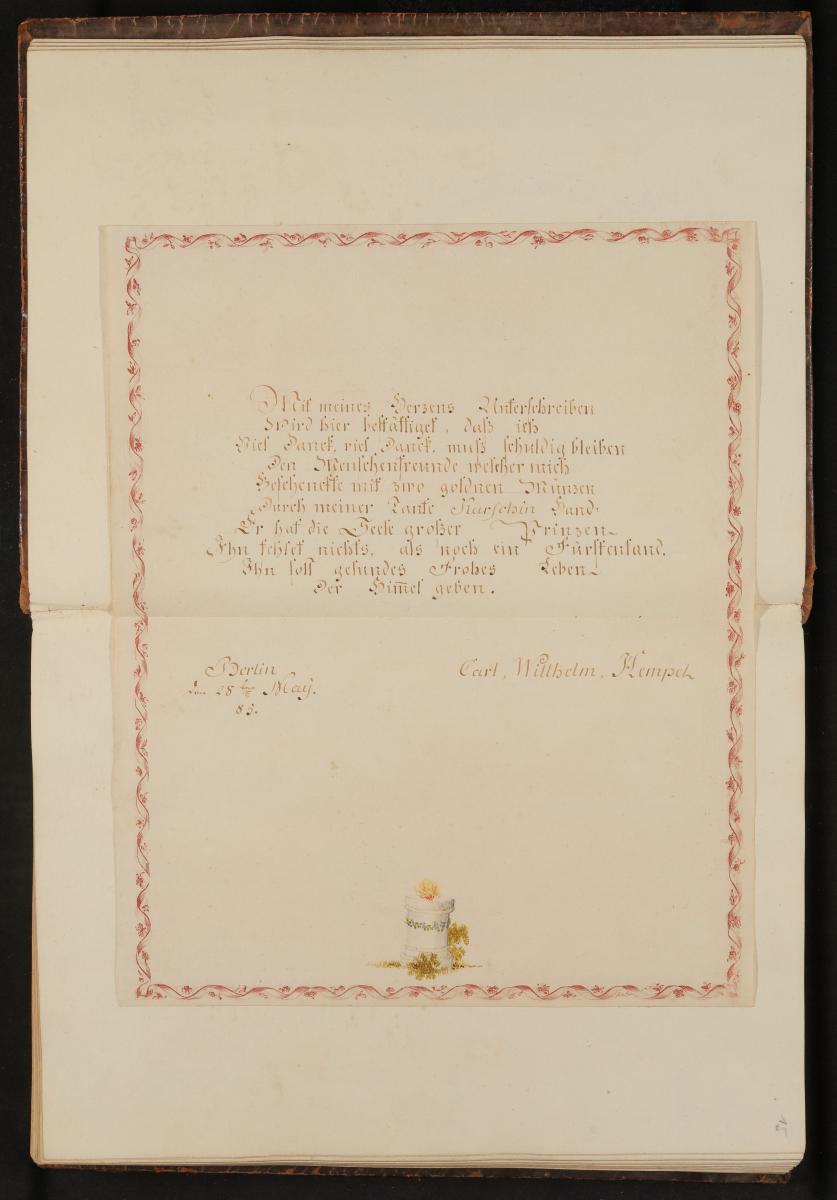 Mit meines Herzens Unterschreiben
Wird hier bestättiget, daß ich
Viel Danck, viel Danck, muß schuldig bleiben
Den Menschenfreunde welcher mich
Beschenckte mit zwo goldnen Münzen
Durch meiner Tante Karschin Hand.
Er hat die Seele großer Prinzen
Ihn fehlet nichts, als noch ein Fürstenland.
Ihn soll gesundes Frohes Leben
Der Him̅el geben.
Berlin
den 28 ten May.
85.
Carl, Wilhelm, Hempel
15